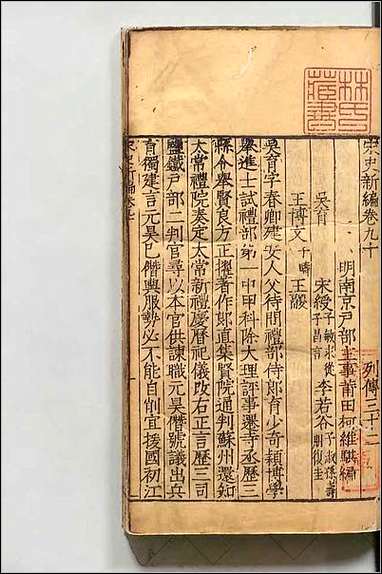 宋史新編卷九十
列傳三十二
明南京戶部主事莆田柯維騏編
吳育
宋綬 子敏求 從子昌言
李若谷 子淑 孫壽朋 復圭
王博文 子疇
王鬷
吳育字春卿建安人父待問禮部侍郎育少奇穎博學
舉進士試禮部第一中甲科除大理評事遷寺丞歷三
縣令舉賢良方正擢著作郎直集賢院通判蘇州還知
太常禮院奏定太常新禮慶曆祀儀改右正言歷三司
鹽鐵戶部二判官尋以本官供諫職元昊僭號議出兵
育獨建言元昊已僭輿服勢必不能自削宜援國初江
宋史新編卷九十
林氏藏書